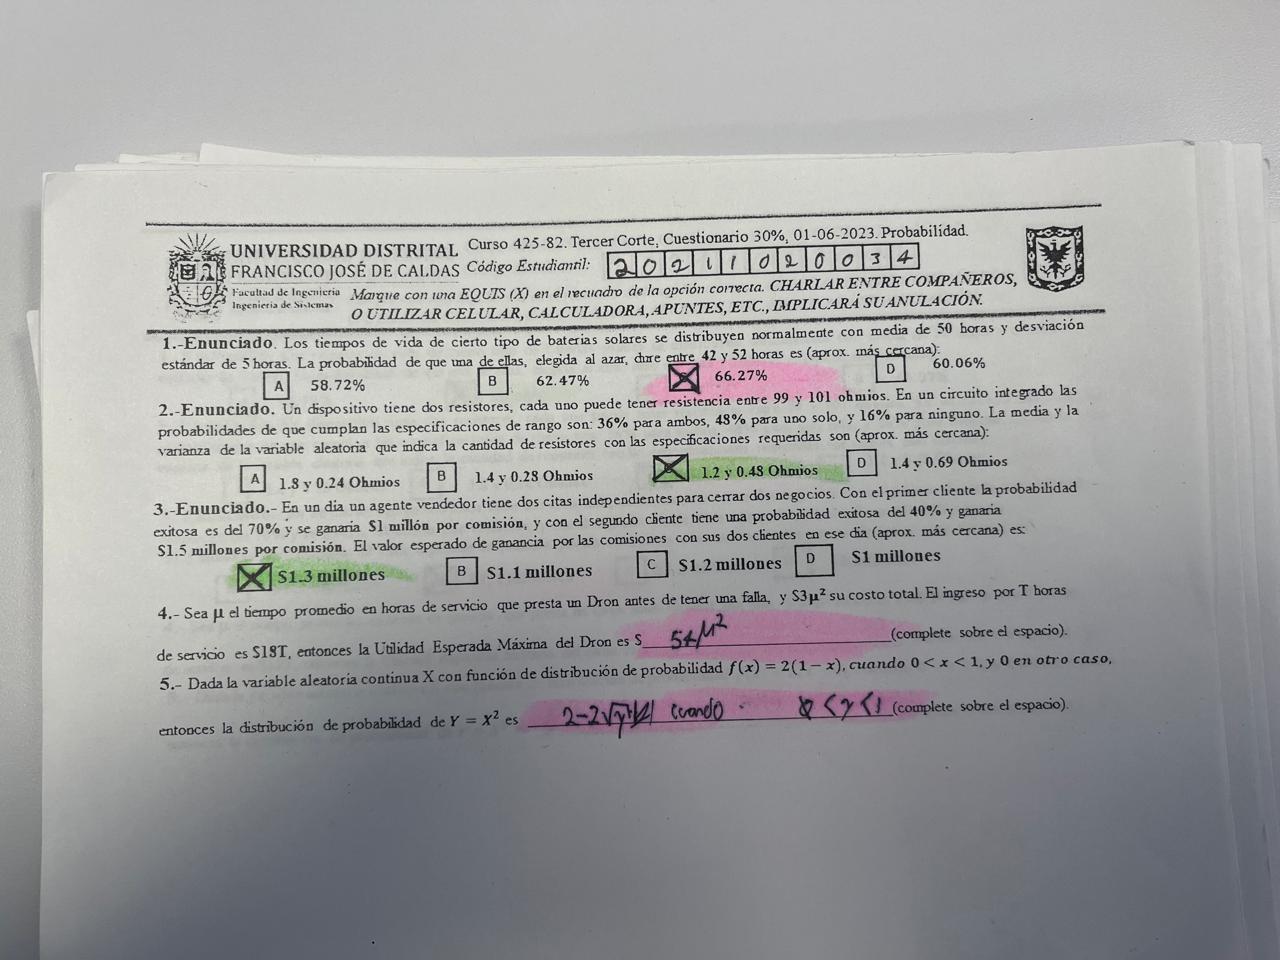 UNIVERSIDAD DISTRITAL
FRANCISCO JOSÉ DE CALDAS
Facultad de Ingeniería
Ingeniería de Sistemas
Curso 425-82. Tercer Corte, Cuestionario 30%, 01-06-2023. Probabilidad.
Código Estudiantil: 20211020034
Marque con una EQUIS (X) en el recuadro de la opción correcta. CHARLAR ENTRE COMPAÑEROS,
O UTILIZAR CELULAR, CALCULADORA, APUNTES, ETC., IMPLICARÁ SU ANULACIÓN.
1.-Enunciado. Los tiempos de vida de cierto tipo de baterías solares se distribuyen normalmente con media de 50 horas y desviación
estándar de 5 horas. La probabilidad de que una de ellas, elegida al azar, dure entre 42 y 52 horas es (aprox. más cercana):
A 58.72% B 62.47% C 66.27% D 60.06%
2.-Enunciado. Un dispositivo tiene dos resistores, cada uno puede tener resistencia entre 99 y 101 ohmios. En un circuito integrado las
probabilidades de que cumplan las especificaciones de rango son: 36% para ambos, 48% para uno solo, y 16% para ninguno. La media y la
varianza de la variable aleatoria que indica la cantidad de resistores con las especificaciones requeridas son (aprox. más cercana):
A 1.8 y 0.24 Ohmios B 1.4 y 0.28 Ohmios C 1.2 y 0.48 Ohmios D 1.4 y 0.69 Ohmios
3.-Enunciado.- En un día un agente vendedor tiene dos citas independientes para cerrar dos negocios. Con el primer cliente la probabilidad
exitosa es del 70% y se ganaría $1 millón por comisión, y con el segundo cliente tiene una probabilidad exitosa del 40% y ganaría
$1.5 millones por comisión. El valor esperado de ganancia por las comisiones con sus dos clientes en ese día (aprox. más cercana) es:
$1.3 millones B $1.1 millones C $1.2 millones D $1 millones
4.- Sea μ el tiempo promedio en horas de servicio que presta un Dron antes de tener una falla, y $3μ² su costo total. El ingreso por T horas
de servicio es $18T, entonces la Utilidad Esperada Máxima del Dron es $ 54μ² (complete sobre el espacio).
5.- Dada la variable aleatoria continua X con función de distribución de probabilidad f(x) = 2(1 − x), cuando 0 < x < 1, y 0 en otro caso,
entonces la distribución de probabilidad de Y = X² es 2-2√y cuando 0<y<1 (complete sobre el espacio).